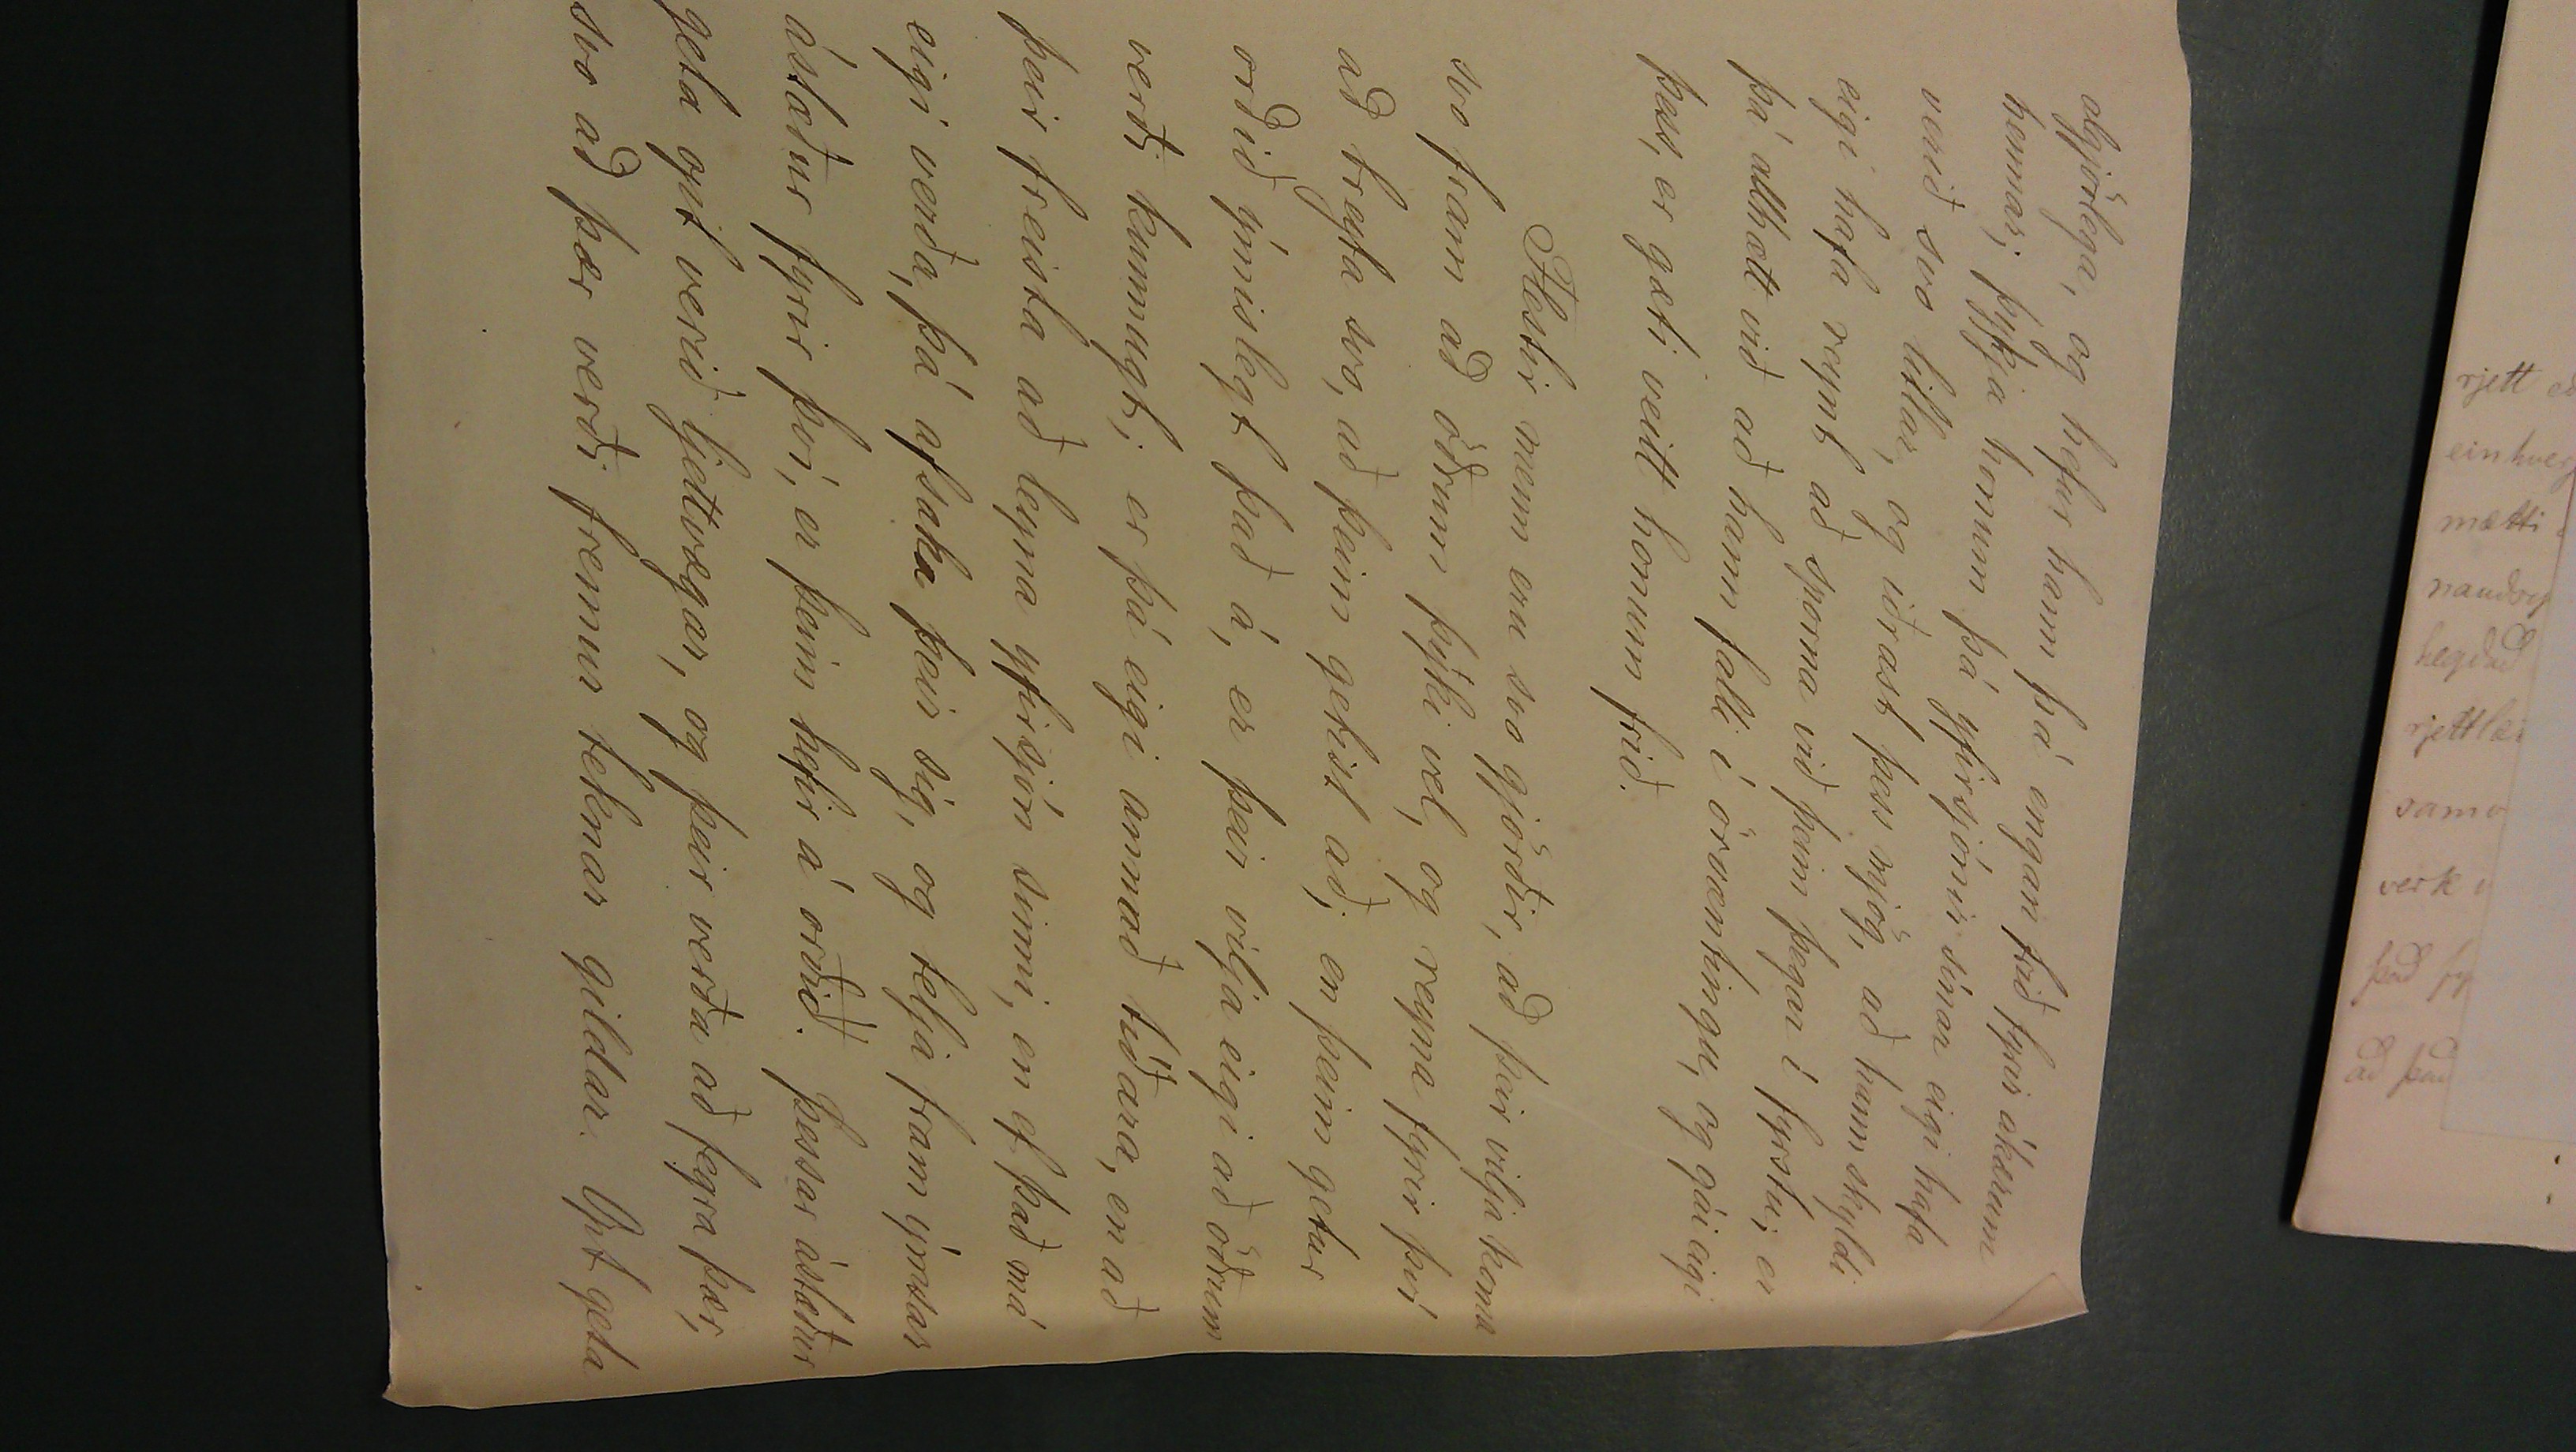 algjörlega, og hefur hann þá engan frið fyrir ákærum
hennar; þykja honum þá yfirsjónir sínar eigi hafa
verið svo litlar, og iðrast þess mjög, að hann skyldi
eigi hafa reynt að sporna við þeim þegar í fyrstu; er
þá allhætt við að hann falli í örvæntingu, og gái eigi
þess, er gæti veitt honum frið.
Flestir menn eru svo gjörðir, að þeir vilja koma
svo fram að öðrum þyki vel, og reyna fyrir því
að breyta svo, að þeim getist að; en þeim getur
orðið ýmislegt það á, er þeir vilja eigi að öðrum
verði kunnugt; er þá eigi annað tíðara, en að
þeir freista að leyna yfirsjón sinni, en ef það má
eigi verða, þá afsaka þeir sig, og telja fram ýmsar
ástæður fyrir því, er þeim hefir á orðið. Þessar ástæður
geta opt verið ljettvægar, og þeir verða að fegra þær,
svo að þær verði fremur teknar gildar. Opt geta
rjett
einhver
mætti
hegðað
verk
það
að það